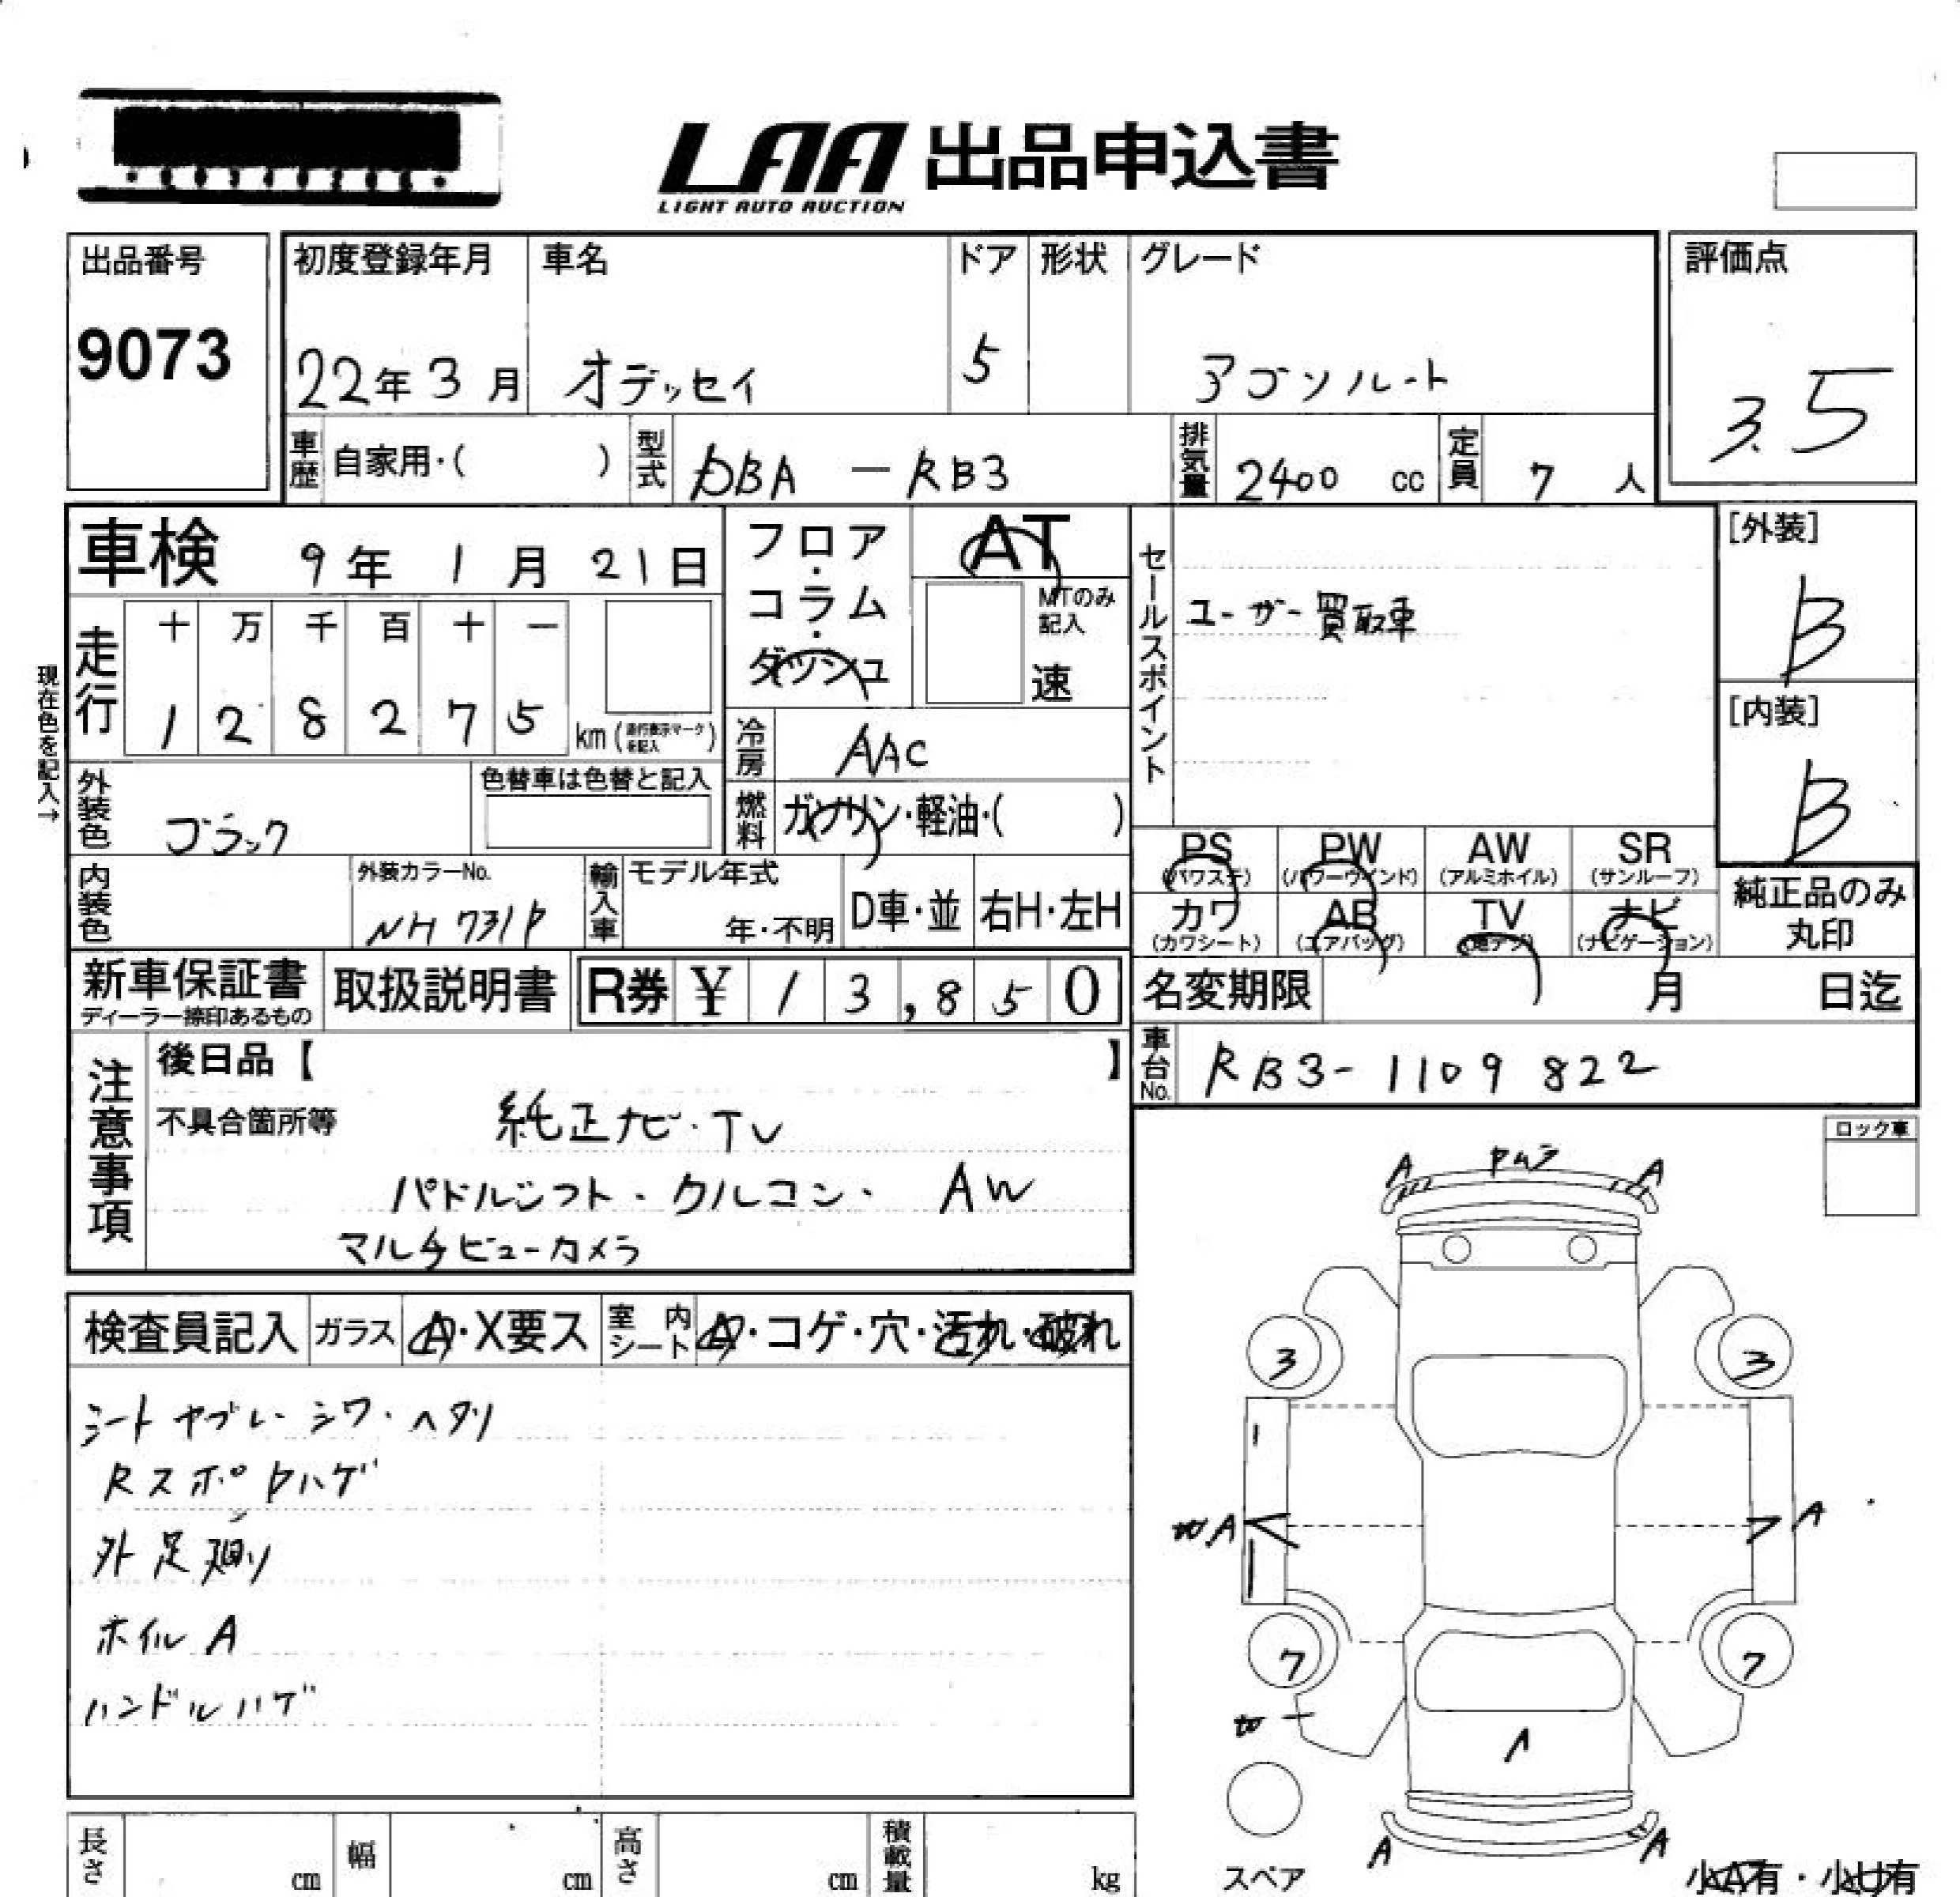 LAA 出品申込書
LIGHT AUTO AUCTION
出品番号
9073
初度登録年月
22年3月
車名
オデッセイ
ドア
5
形状
グレード
アブソルート
評価点
3.5
車歴 自家用・( )
型式 DBA-RB3
排気量 2400 cc
定員 7 人
車検 9年1月21日
フロア・コラム・ダッシュ
AT
MTのみ記入
速
セールスポイント
ユーザー買取車
[外装]
B
[内装]
B
現在色を記入→
走行
十 万 千 百 十 一
1 2 8 2 7 5 km(走行表示マークを記入)
冷房 AAC
外装色 ブラック
色替車は色替と記入
燃料 ガソリン・軽油・( )
PS (パワステ)
PW (パワーウインド)
AW (アルミホイル)
SR (サンルーフ)
内装色
外装カラーNo.
NH731P
輸入車
モデル年式
年・不明
D車・並
右H・左H
カワ (カワシート)
AB (エアバッグ)
TV (地デジ)
ナビ (ナビゲーション)
純正品のみ
丸印
新車保証書
ディーラー捺印あるもの
取扱説明書
R券 ¥ 1 3,8 5 0
名変期限 月 日迄
車台No. RB3-1109822
注意事項
後日品【 】
不具合箇所等
純正ナビ・TV
パドルシフト・クルコン・AW
マルチビューカメラ
ロック車
検査員記入
ガラス A・X要ス
室内シート A・コゲ・穴・汚れ・破れ
シートヤブレ・シワ・ヘタリ
外足廻り
ホイルA
ハンドルハゲ
A A
3 3
A A
7 7
A A
スペア
小A有・小U有
長さ cm
幅 cm
高さ cm
積載量 kg